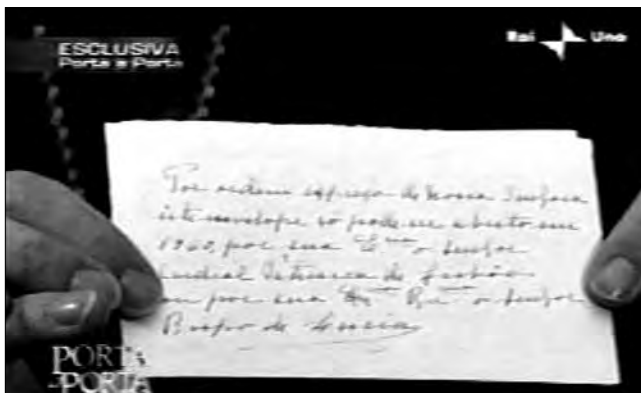 ESCLUSIVA
Porta a Porta
Rai Uno
Por ordem expressa de Nossa Senhora
este envelope só pode ser aberto em
1960, por sua Emcia o Senhor
Cardeal Patriarca de Lisboa
ou por sua Ex Rev o Senhor
Bispo de Leiria
PORTA
a PORTA